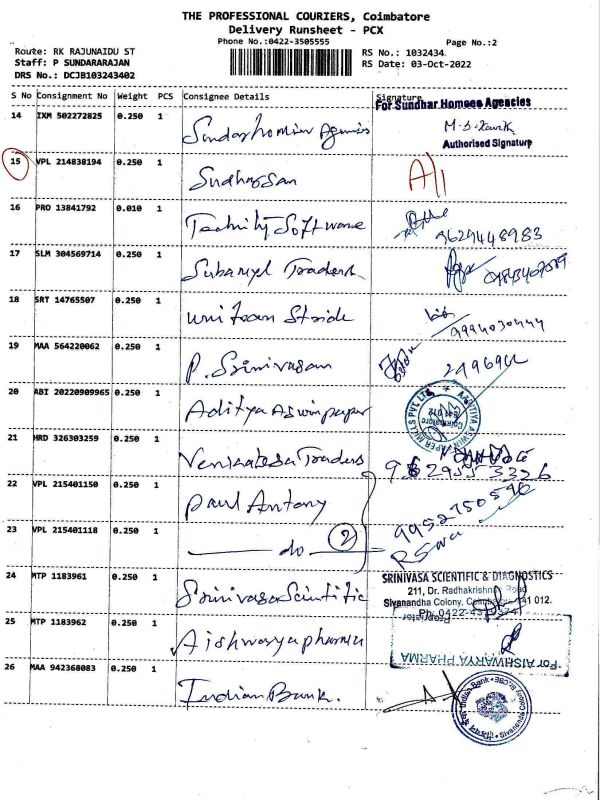 THE PROFESSIONAL COURIERS, Coimbatore
Delivery Runsheet - PCX
Phone No.:0422-3505555
Page No.:2
Route: RK RAJUNAIDU ST
RS No.: 1032434
Staff: P SUNDARARAJAN
RS Date: 03-Oct-2022
DRS No.: DCJB103243402
S No Consignment No Weight PCS Consignee Details Signature
For Sundhar Homeeo Agencies
14 IXM 502272825 0.250 1
Authorised Signature
15 VPL 214838194 0.250 1 Sudharsan
16 PRO 13841792 0.010 1 Software
9629448983
17 SLM 304569714 0.250 1 Traders
18 SRT 14765507 0.250 1 Stride
19 MAA 564220062 0.250 1 P. Srinivasan
20 ABI 20220909965 0.250 1 Aditya Aswin paper
21 HRD 326303259 0.250 1 Venkatesa Traders
22 VPL 215401150 0.250 1 Paul Antony
23 VPL 215401118 0.250 1 do 2
24 MTP 1183961 0.250 1 Srinivasa Scientific
SRINIVASA SCIENTIFIC & DIAGNOSTICS
211, Dr. Radhakrishnan Road
Sivanandha Colony, Coimbatore-641 012.
25 MTP 1183962 0.250 1 Aishwarya pharma
For AISHWARYA PHARMA
Proprietor
26 MAA 942368083 0.250 1 Indian Bank.